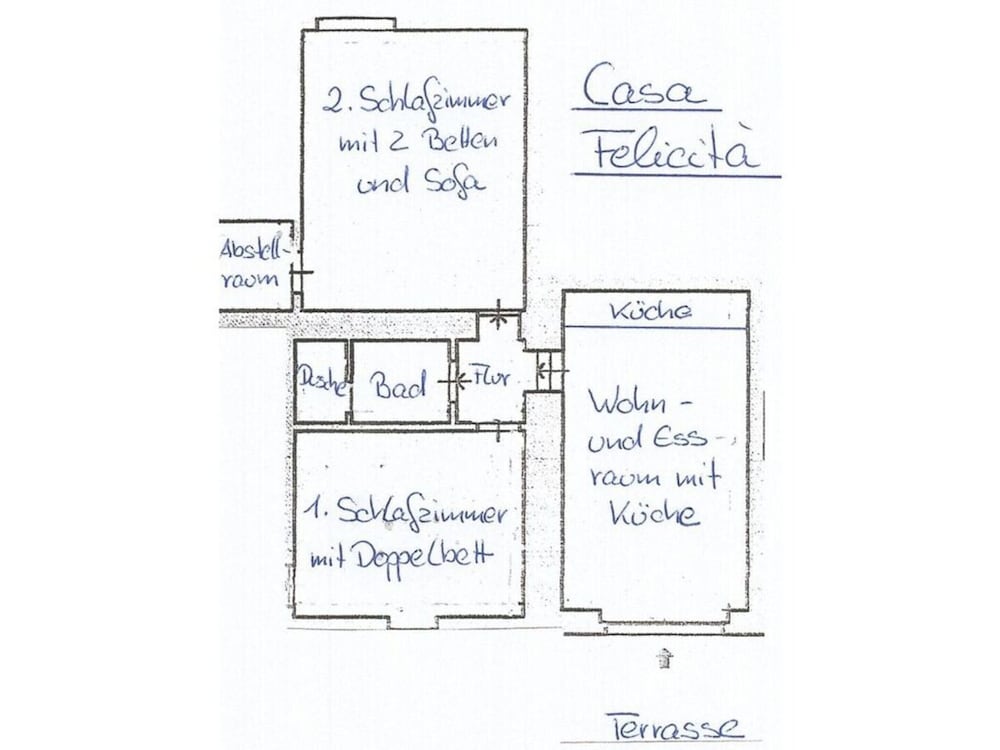 Casa
Felicità
2. Schlafzimmer
mit 2 Betten
und Sofa
Abstell-
raum
Küche
Dusche
Bad
Flur
Wohn-
und Ess-
raum mit
Küche
1. Schlafzimmer
mit Doppelbett
Terrasse